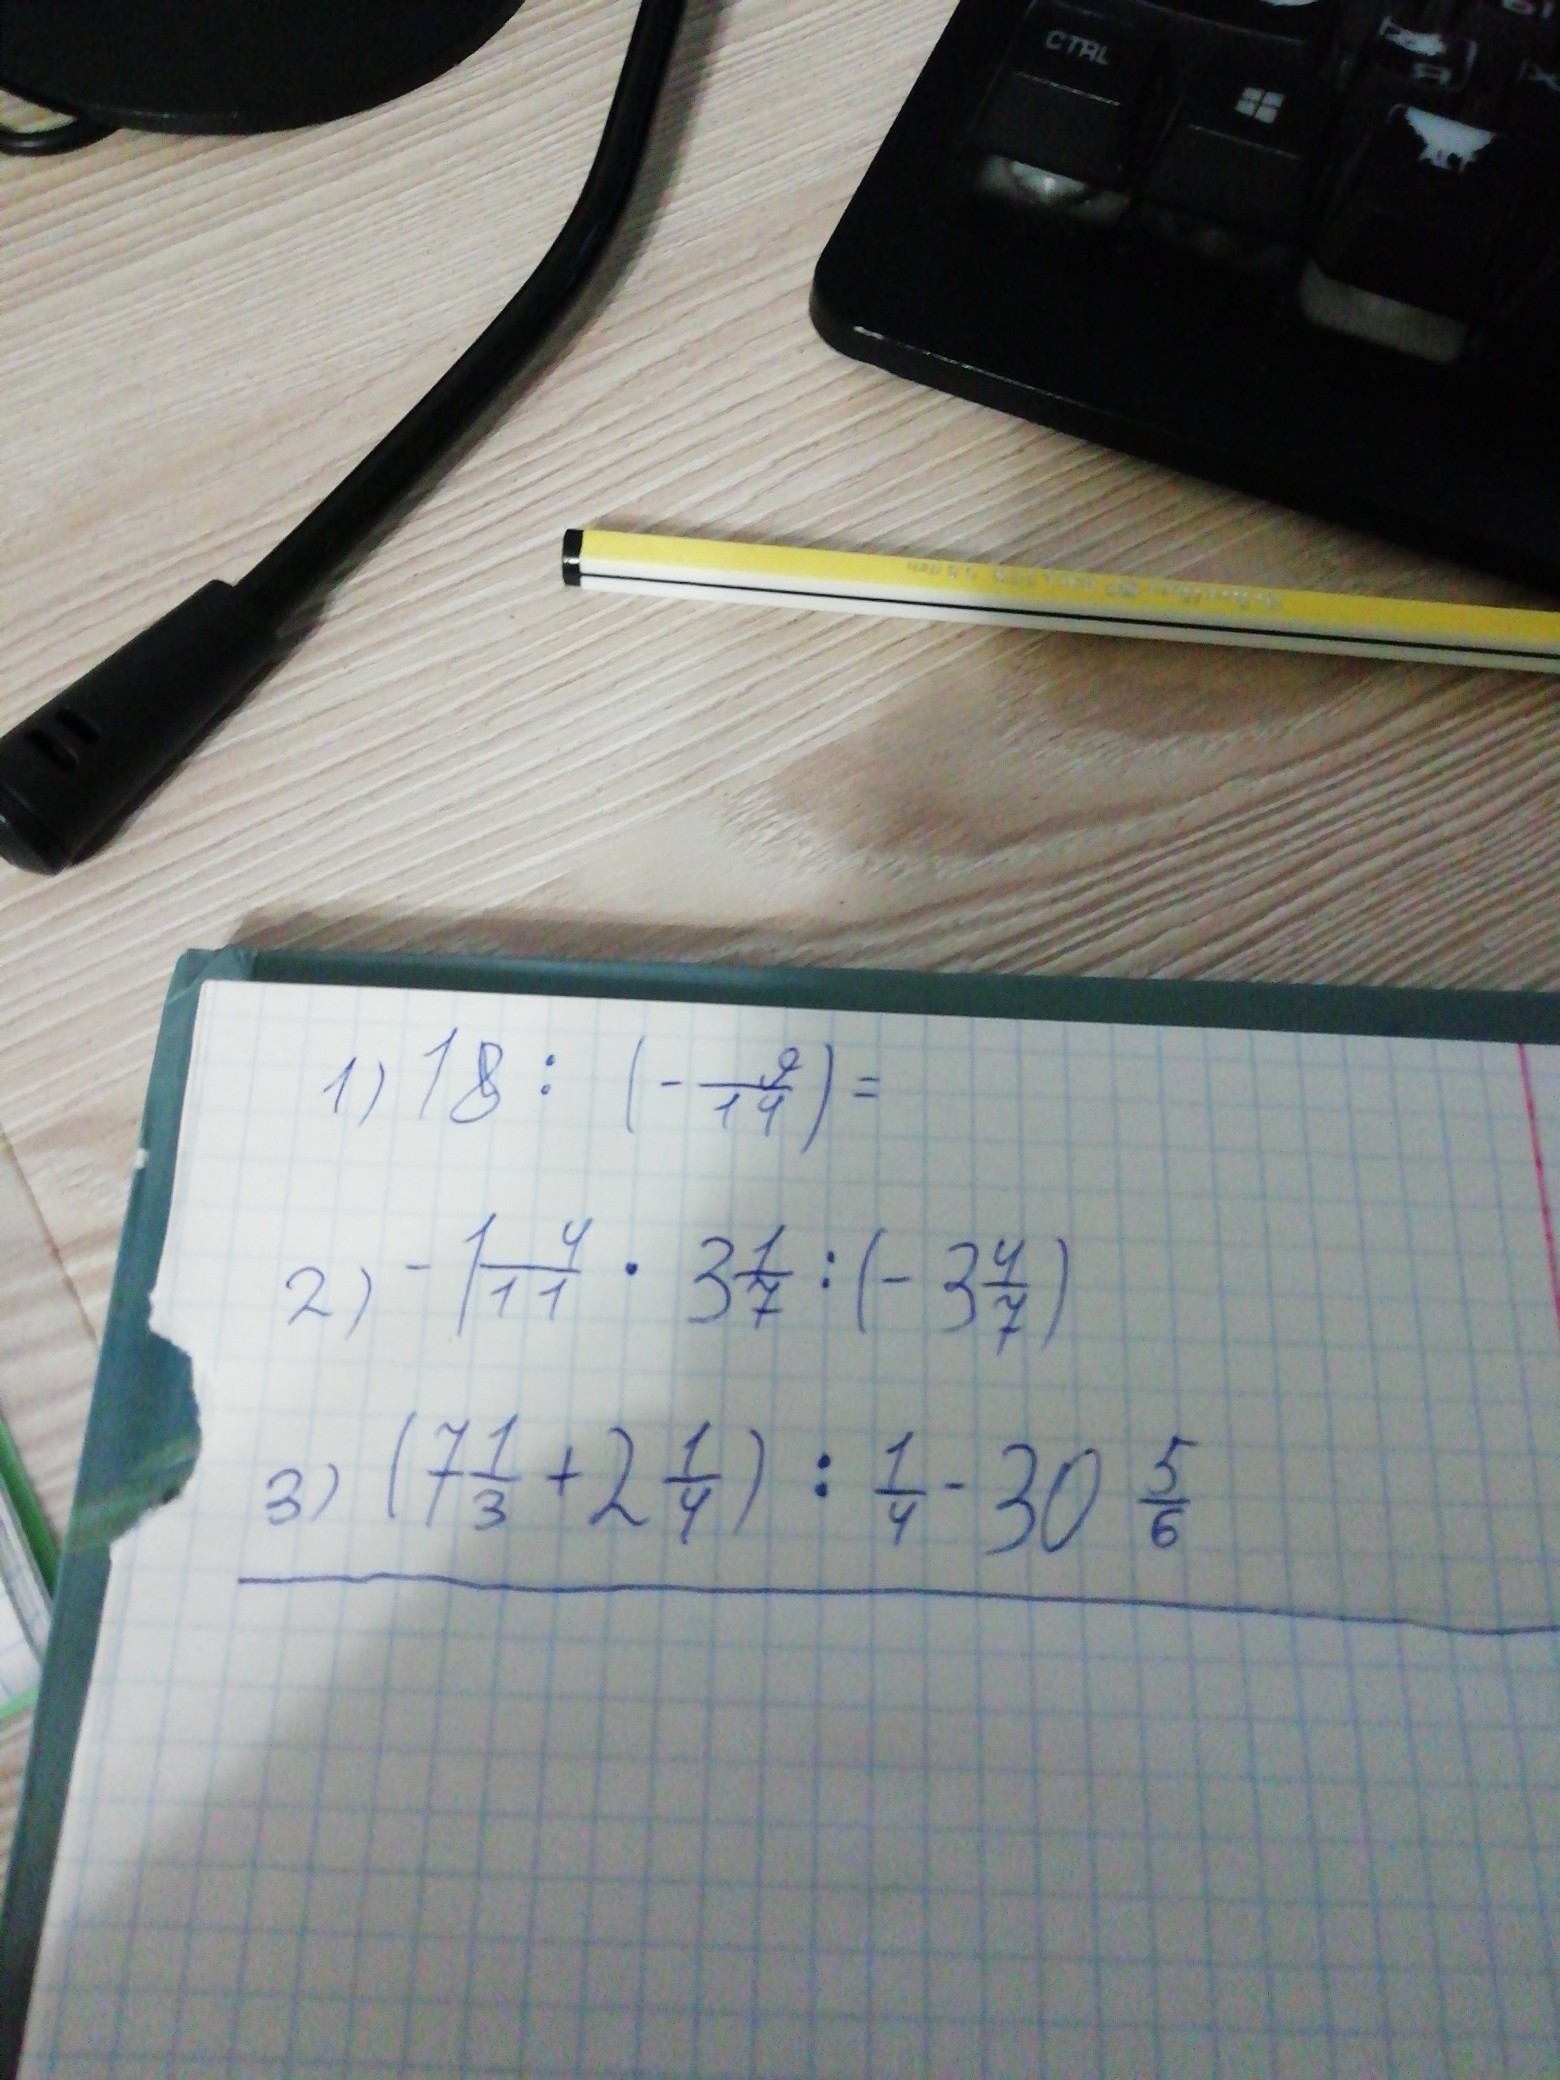 CTRL
ALT
1) 18 : (- 9/14) =
2) - 1 4/11 · 3 1/7 : (- 3 4/7)
3) (7 1/3 + 2 1/4) : 1/4 - 30 5/6